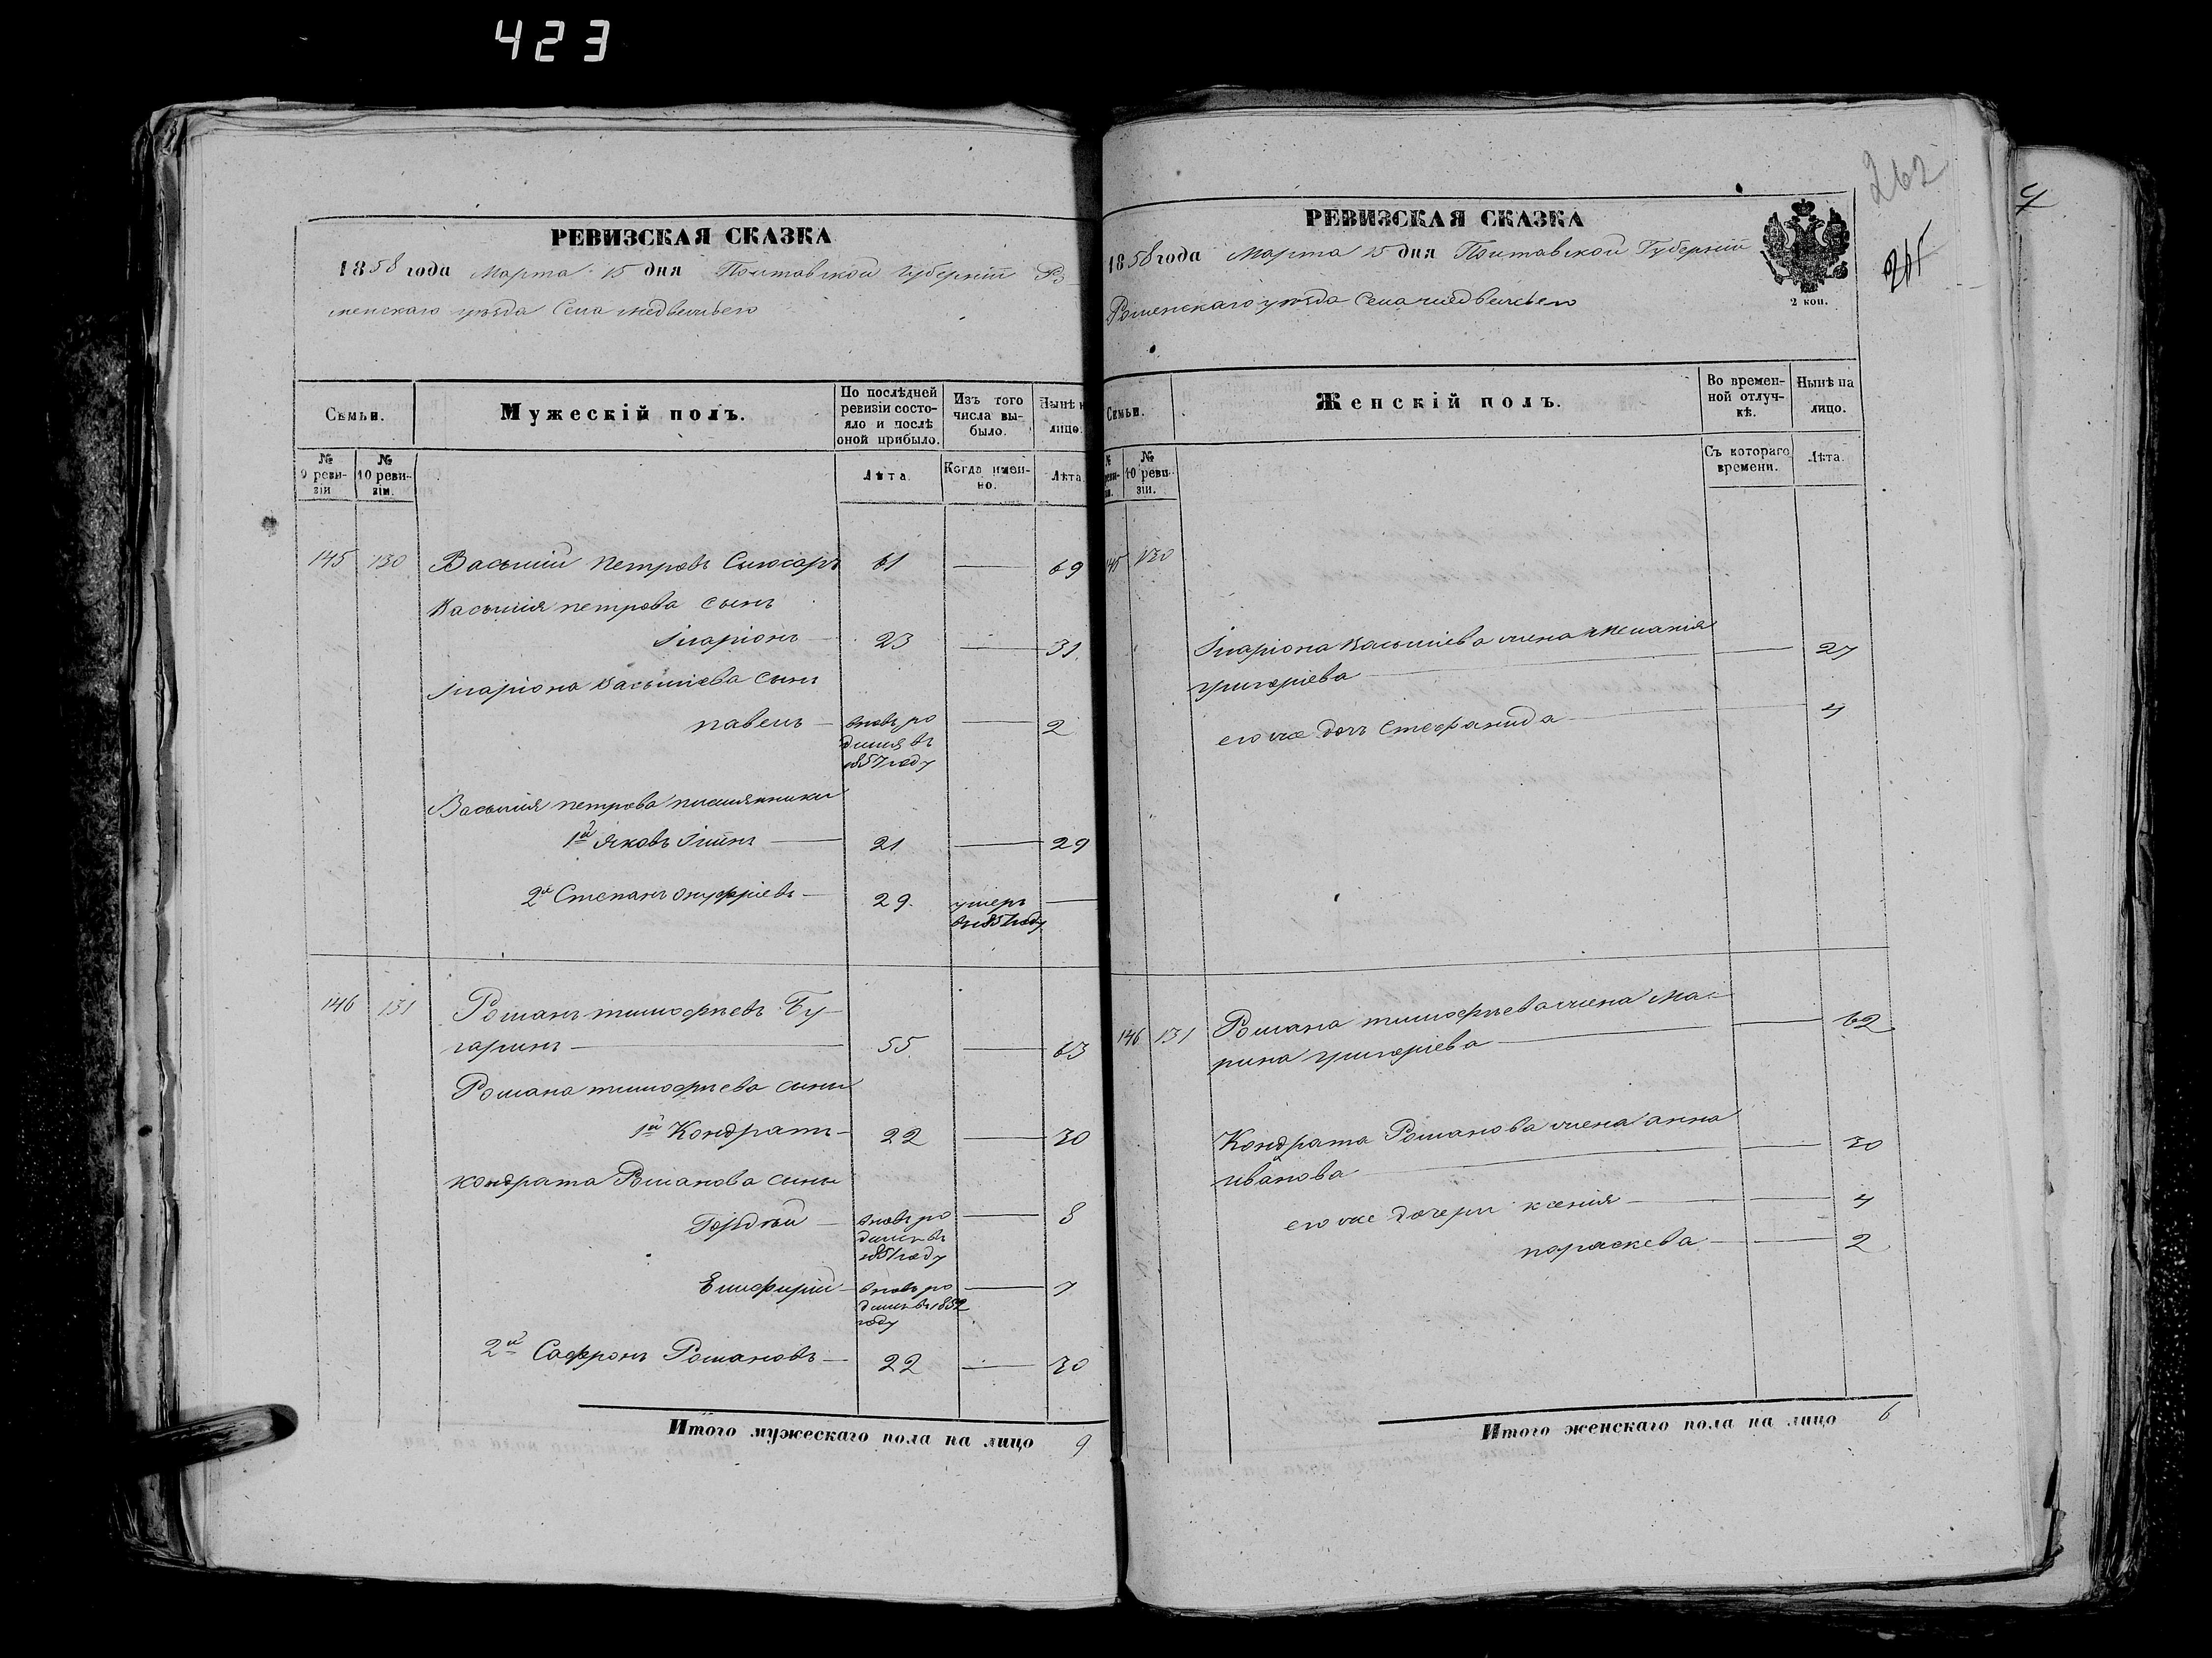 423
РЕВИЗСКАЯ СКАЗКА
1858 года Марта 15 дня Полтавской губерніи Ро-
менскаго уѣзда Села Медвежьего
Семьи.
Мужескій полъ.
По послѣдней ревизіи состояло и послѣ оной прибыло.
Изъ того числа выбыло.
Нынѣ н
лицо.
№ 9 ревизіи
№ 10 ревизіи.
Лѣта.
Когда именно.
Лѣта
145 130 Василій Петровъ Слюсарь 61 — 69
Василія Петрова сынъ
Іларіонъ — 23 — 31
Іларіона Васильева сынъ
павелъ — вновь ро — 2
дился въ
1857 году
Василія петрова племянники
1й Яковъ Ілiинъ — 21 — 29
2й Степанъ Онуфріевъ — 29 умеръ —
въ 1851 году
146 131 Романъ тимофѣевъ Бу-
гаринъ — 55 — 63
Романа тимофѣева сыны
1й Кондратъ — 22 — 30
кондрата Романова сыны
Гордѣй — вновь ро — 8
дился въ
1851 году
вновь ро — 7
дился въ 1852
году
2й Софронъ Романовъ — 22 — 30
Итого мужескаго пола на лицо 9
262
РЕВИЗСКАЯ СКАЗКА
1858 года Марта 15 дня Полтавской Губерніи
Роменскаго уѣзда Села медвежьего
2 коп.
4
Семьи.
Женскій полъ.
Во временной отлучкѣ.
Нынѣ на лицо.
№ 10 ревизіи.
Съ котораго времени.
Лѣта.
145 130
Іларіона Васильева жена Меланія
григоріева — 27
его же дочь Стефанида — 4
146 131 Романа тимофѣева жена Ма-
рина григоріева — 62
Кондрата Романова жена анна
иванова — 30
его же дочери ксенія — 4
параскева — 2
Итого женскаго пола на лицо 6